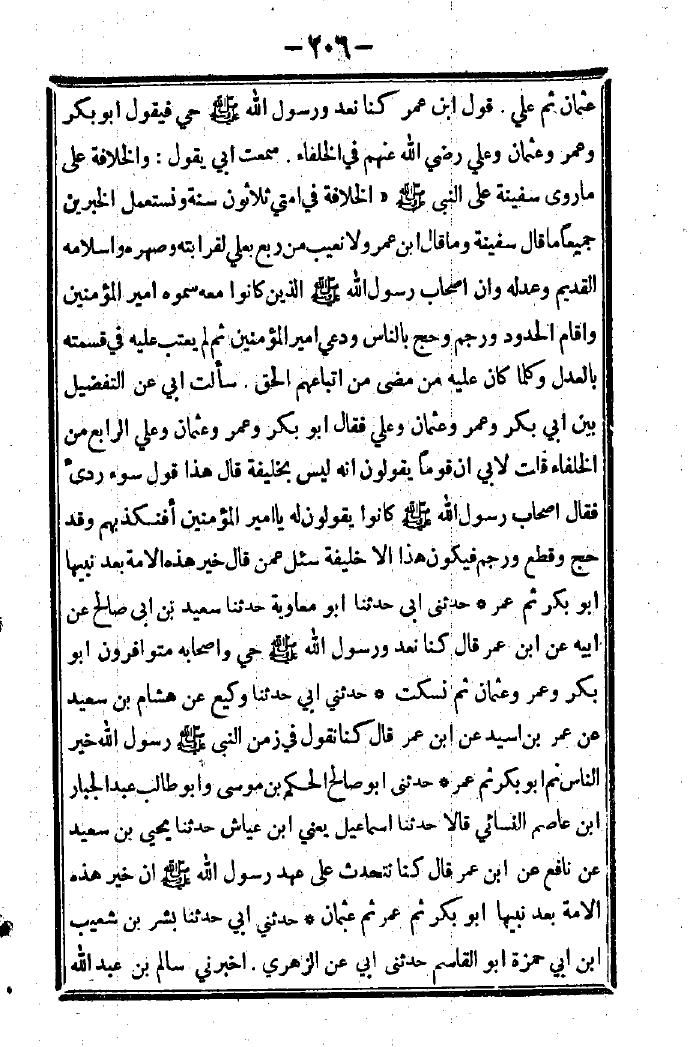 -٢٠٦-
عثمان ثم علي . قول ابن عمر كنا نعد ورسول الله ﷺ حي فيقول ابو بكر
وعمر وعثمان وعلي رضي الله عنهم في الخلفاء . سمعت ابي يقول : والخلافة على
ماروى سفينة على النبي ﷺ « الخلافة في امتي ثلاثون سنة ونستعمل الخبرين
جميعاً ماقال سفينة وماقال ابن عمر ولا نعيب من ربع بعلي لقرابته وصهره واسلامه
القديم وعدله وان اصحاب رسول الله ﷺ الذين كانوا معه سموه امير المؤمنين
واقام الحدود ورجم وحج بالناس ودعي امير المؤمنين ثم لم يعتب عليه في قسمته
بالعدل وكلما كان عليه من مضى من اتباعهم الحق . سألت ابي عن التفضيل
بين ابي بكر وعمر وعثمان وعلي فقال ابو بكر وعمر وعثمان وعلي الرابع من
الخلفاء قات لابي ان قوماً يقولون انه ليس بخليفة قال هذا قول سوء ردىء
فقال اصحاب رسول الله ﷺ كانوا يقولون له ياامير المؤمنين أفنكذبهم وقد
حج وقطع ورجم فيكون هذا الا خليفة سئل عمن قال خير هذه الامة بعد نبيها
ابو بكر ثم عمر * حدثنى ابي حدثنا ابو معاوية حدثنا سعيد بن ابى صالح عن
ابيه عن ابن عمر قال كنا نعد ورسول الله ﷺ حي واصحابه متوافرون ابو
بكر وعمر وعثمان ثم نسكت * حدثني ابي حدثنا وكيع عن هشام بن سعيد
عن عمر بن اسيد عن ابن عمر قال كنا نقول في زمن النبي ﷺ رسول الله خير
الناس ثم ابو بكر ثم عمر * حدثنى ابو صالح الحكم بن موسى وابو طالب عبد الجبار
ابن عاصم النسائي قالا حدثنا اسماعيل يعني ابن عياش حدثنا يحيى بن سعيد
عن نافع عن ابن عمر قال كنا نتحدث على عهد رسول الله ﷺ ان خير هذه
الامة بعد نبيها ابو بكر ثم عمر ثم عثمان * حدثني ابي حدثنا بشر بن شعيب
ابن ابي حمزة ابو القاسم حدثنى ابي عن الزهري . اخبرني سالم بن عبد الله